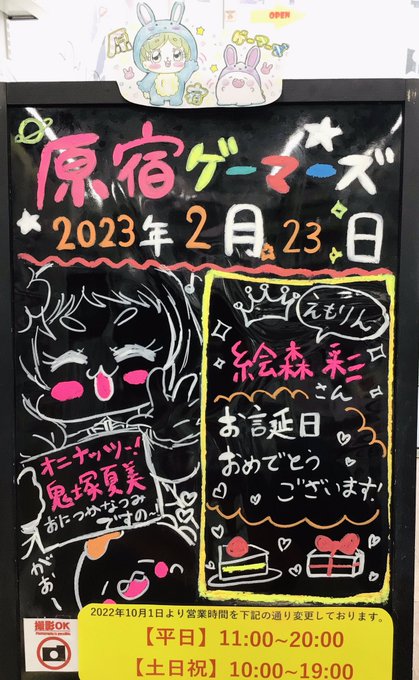 OPEN
原宿
ゲーマーズ
原宿ゲーマーズ
2023年2月23日
えもりん
絵森彩
さん
お誕日
おめでとう
ございます!
オニナッツー!
鬼塚夏美
おにつかなつみ
ですの〜!
がおー
2022年10月1日より営業時間を下記の通り変更しております。
【平日】11:00~20:00
【土日祝】10:00~19:00
撮影OK
Photography is possible.